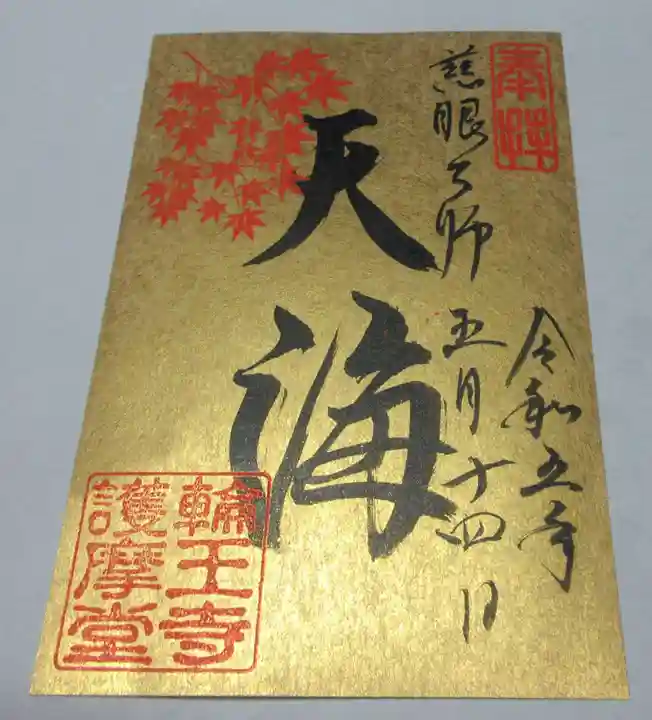 奉拝
令和五年
五月十四日
慈眼大師
天海
輪王寺
護摩堂